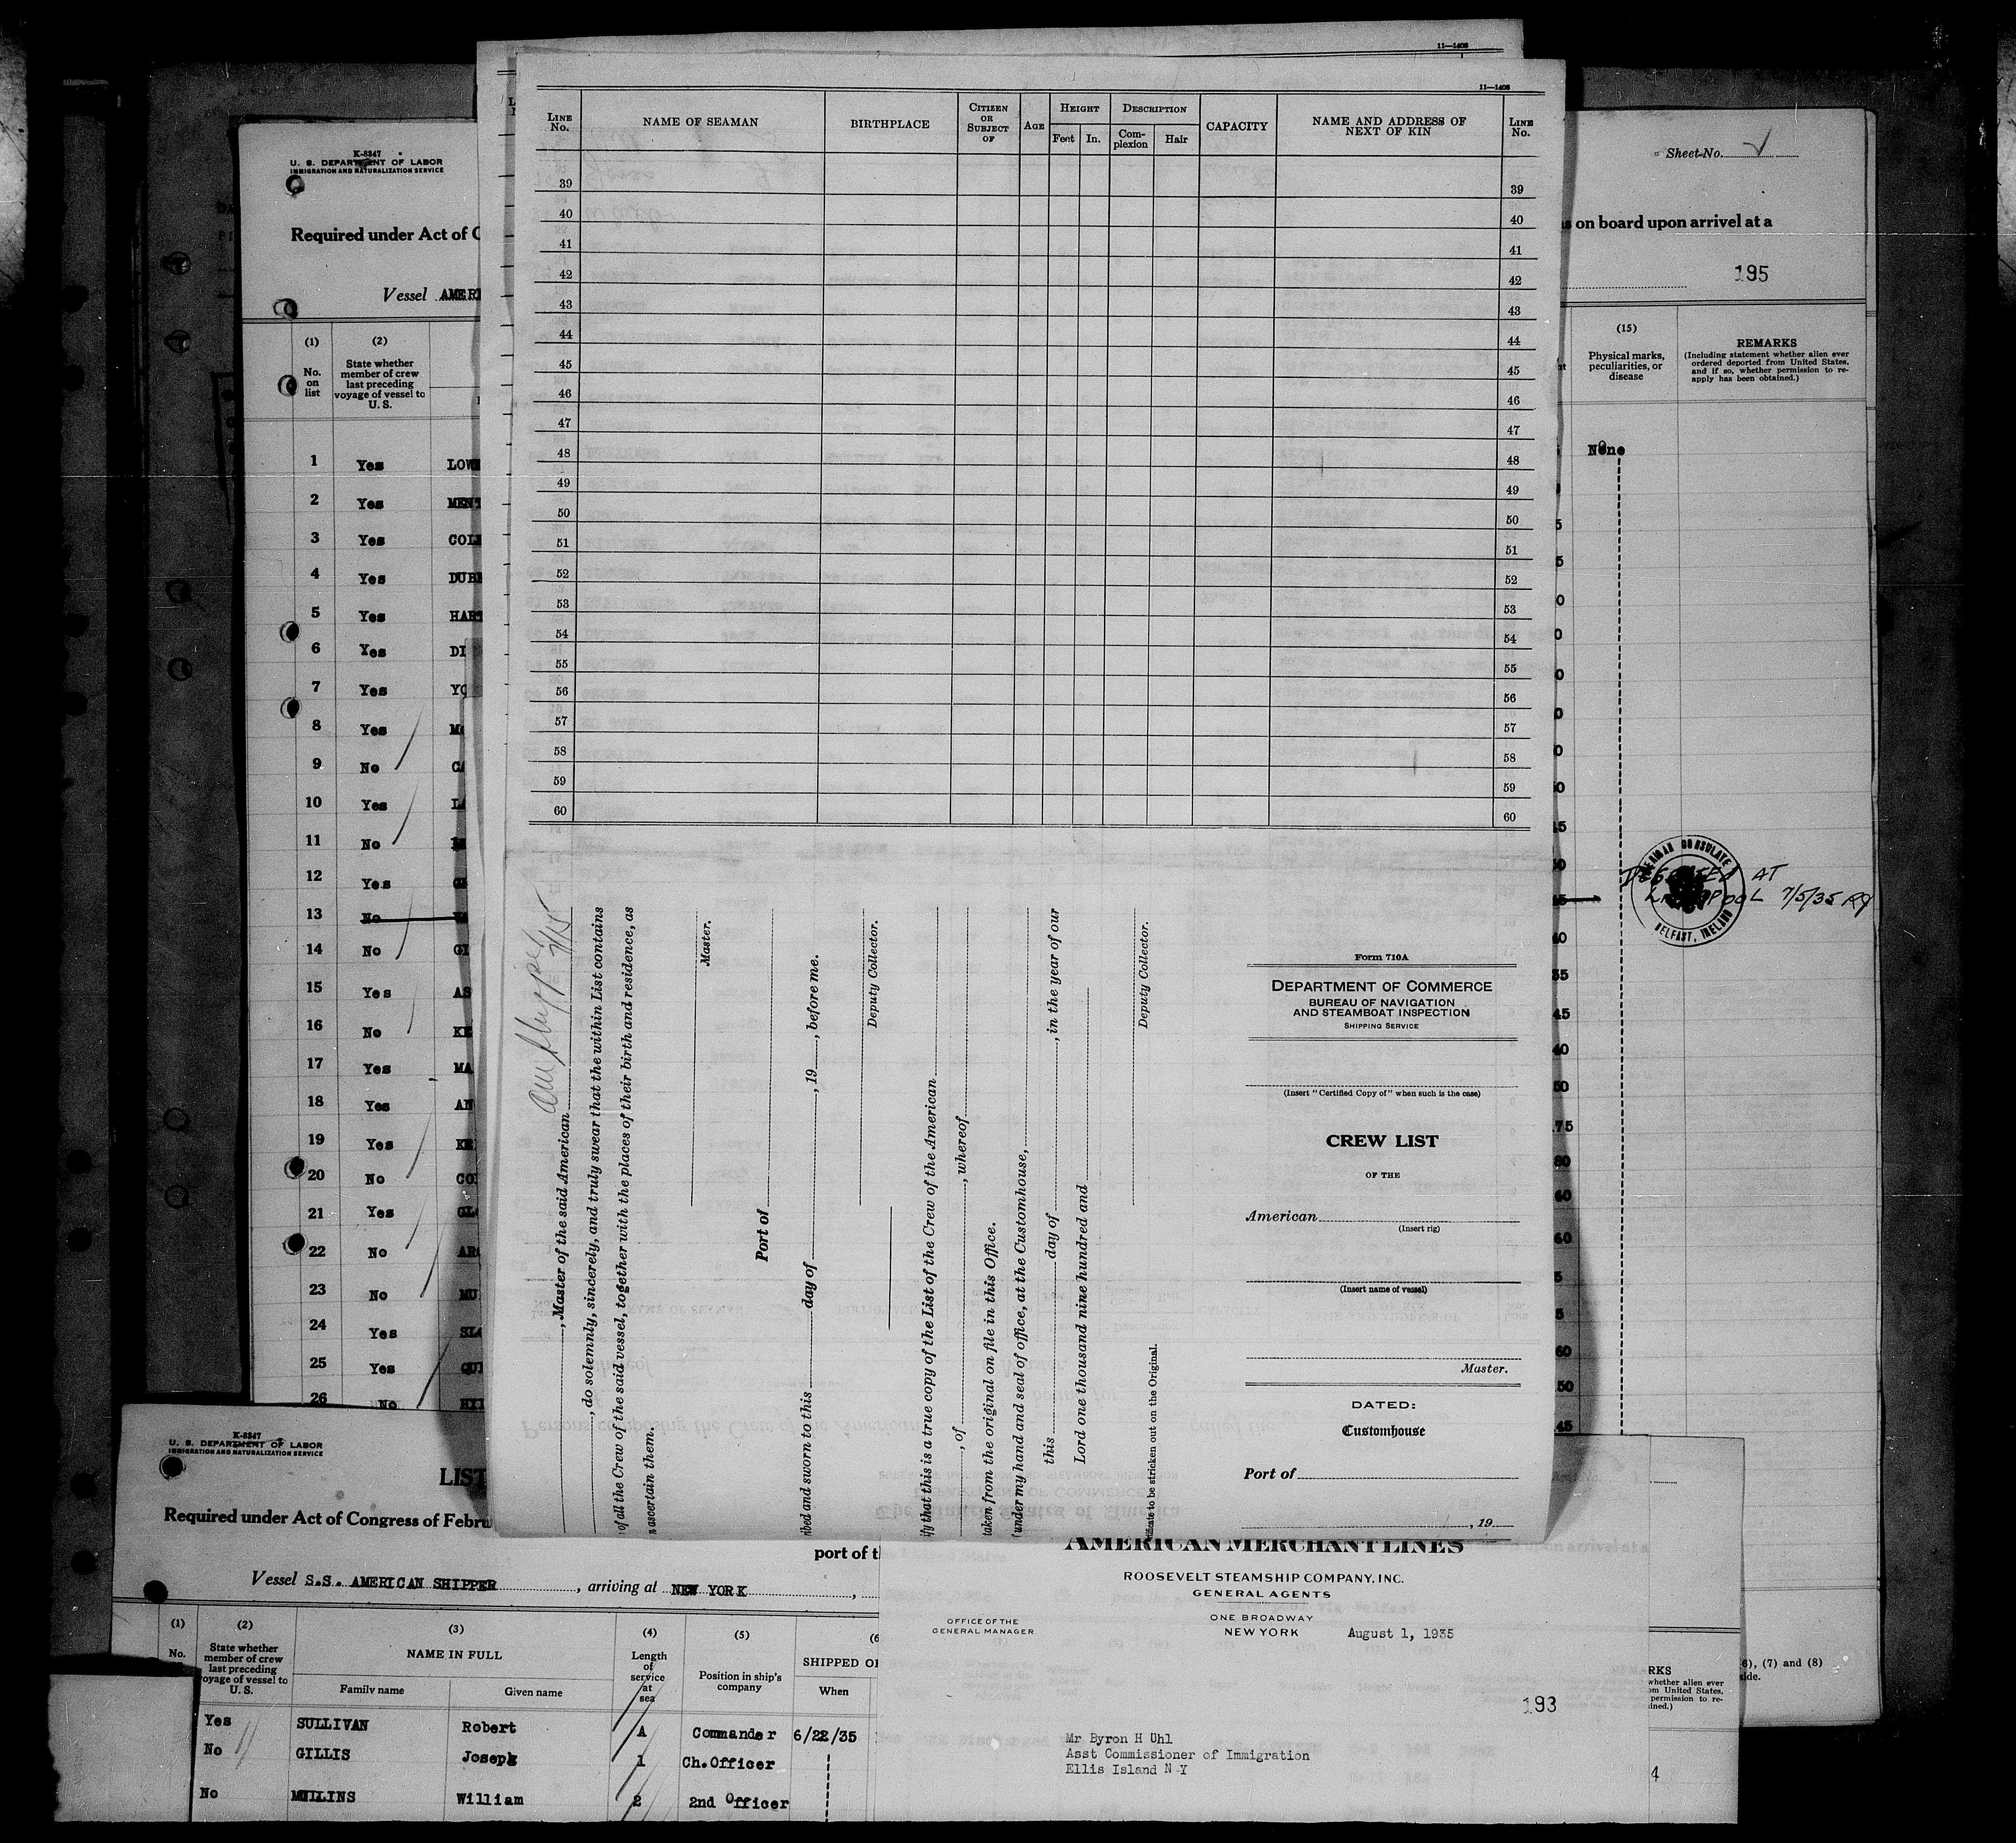 11—1408
11—1408
LINE No.
NAME OF SEAMAN
BIRTHPLACE
CITIZEN OR SUBJECT OF
AGE
HEIGHT
Feet
In.
DESCRIPTION
Com-plexion
Hair
CAPACITY
NAME AND ADDRESS OF NEXT OF KIN
LINE No.
39 39
40 40
41 41
42 42
43 43
44 44
45 45
46 46
47 47
48 48
49 49
50 50
51 51
52 52
53 53
54 54
55 55
56 56
57 57
58 58
59 59
60 60
7/15
, Master of the said American
, do solemnly, sincerely, and truly swear that the within List contains
of all the Crew of the said vessel, together with the places of their birth and residence, as
ascertain them.
Master.
Port of
and sworn to this day of , 19 , before me.
Deputy Collector.
that this is a true copy of the List of the Crew of the American
, of , whereof
taken from the original on file in this Office.
under my hand and seal of office, at the Customhouse,
this day of , in the year of our
Lord one thousand nine hundred and
Deputy Collector.
to be stricken out on the Original.
Form 710A
DEPARTMENT OF COMMERCE
BUREAU OF NAVIGATION
AND STEAMBOAT INSPECTION
SHIPPING SERVICE
(Insert "Certified Copy of" when such is the case)
CREW LIST
OF THE
American
(Insert rig)
(Insert name of vessel)
Master.
DATED:
Customhouse
Port of
, 19
K-8347
U. S. DEPARTMENT OF LABOR
IMMIGRATION AND NATURALIZATION SERVICE
Required under Act of C
Vessel AMERI
(1)
No. on list
(2)
State whether member of crew last preceding voyage of vessel to U. S.
1 Yes LOW
2 Yes MENT
3 Yes COL
4 Yes DUB
5 Yes HART
6 Yes DI
7 Yes YO
8 Yes M
9 No CA
10 Yes LA
11 No
12 Yes
13 No
14 No GI
15 Yes AS
16 No KE
17 Yes MA
18 Yes AN
19 Yes KE
20 No CO
21 Yes GL
22 No AR
23 No MU
24 Yes SL
25 Yes QUI
26 No
Sheet No.
on board upon arrival at a
195
(15)
Physical marks, peculiarities, or disease
REMARKS
(Including statement whether alien ever ordered deported from United States, and if so, whether permission to re-apply has been obtained.)
None
AT
7/5/35
CONSULATE
BELFAST, IRELAND
K-8347
U. S. DEPARTMENT OF LABOR
IMMIGRATION AND NATURALIZATION SERVICE
LIST
Required under Act of Congress of Febru
port of t
Vessel S.S. AMERICAN SHIPPER , arriving at NEW YORK ,
(1)
No.
(2)
State whether member of crew last preceding voyage of vessel to U. S.
(3)
NAME IN FULL
Family name
Given name
(4)
Length of service at sea
(5)
Position in ship's company
(6
SHIPPED O
When
Yes SULLIVAN Robert A Commander 6/22/35
No GILLIS Joseph 1 Ch.Officer
No MULLINS William 2 2nd Officer
AMERICAN MERCHANT LINES
ROOSEVELT STEAMSHIP COMPANY, INC.
GENERAL AGENTS
OFFICE OF THE
GENERAL MANAGER
ONE BROADWAY
NEW YORK August 1, 1935
193
Mr Byron H Uhl
Asst Commissioner of Immigration
Ellis Island N Y
6), (7) and (8)
side.
RKS
whether alien ever
om United States,
permission to re-
ined.)
4